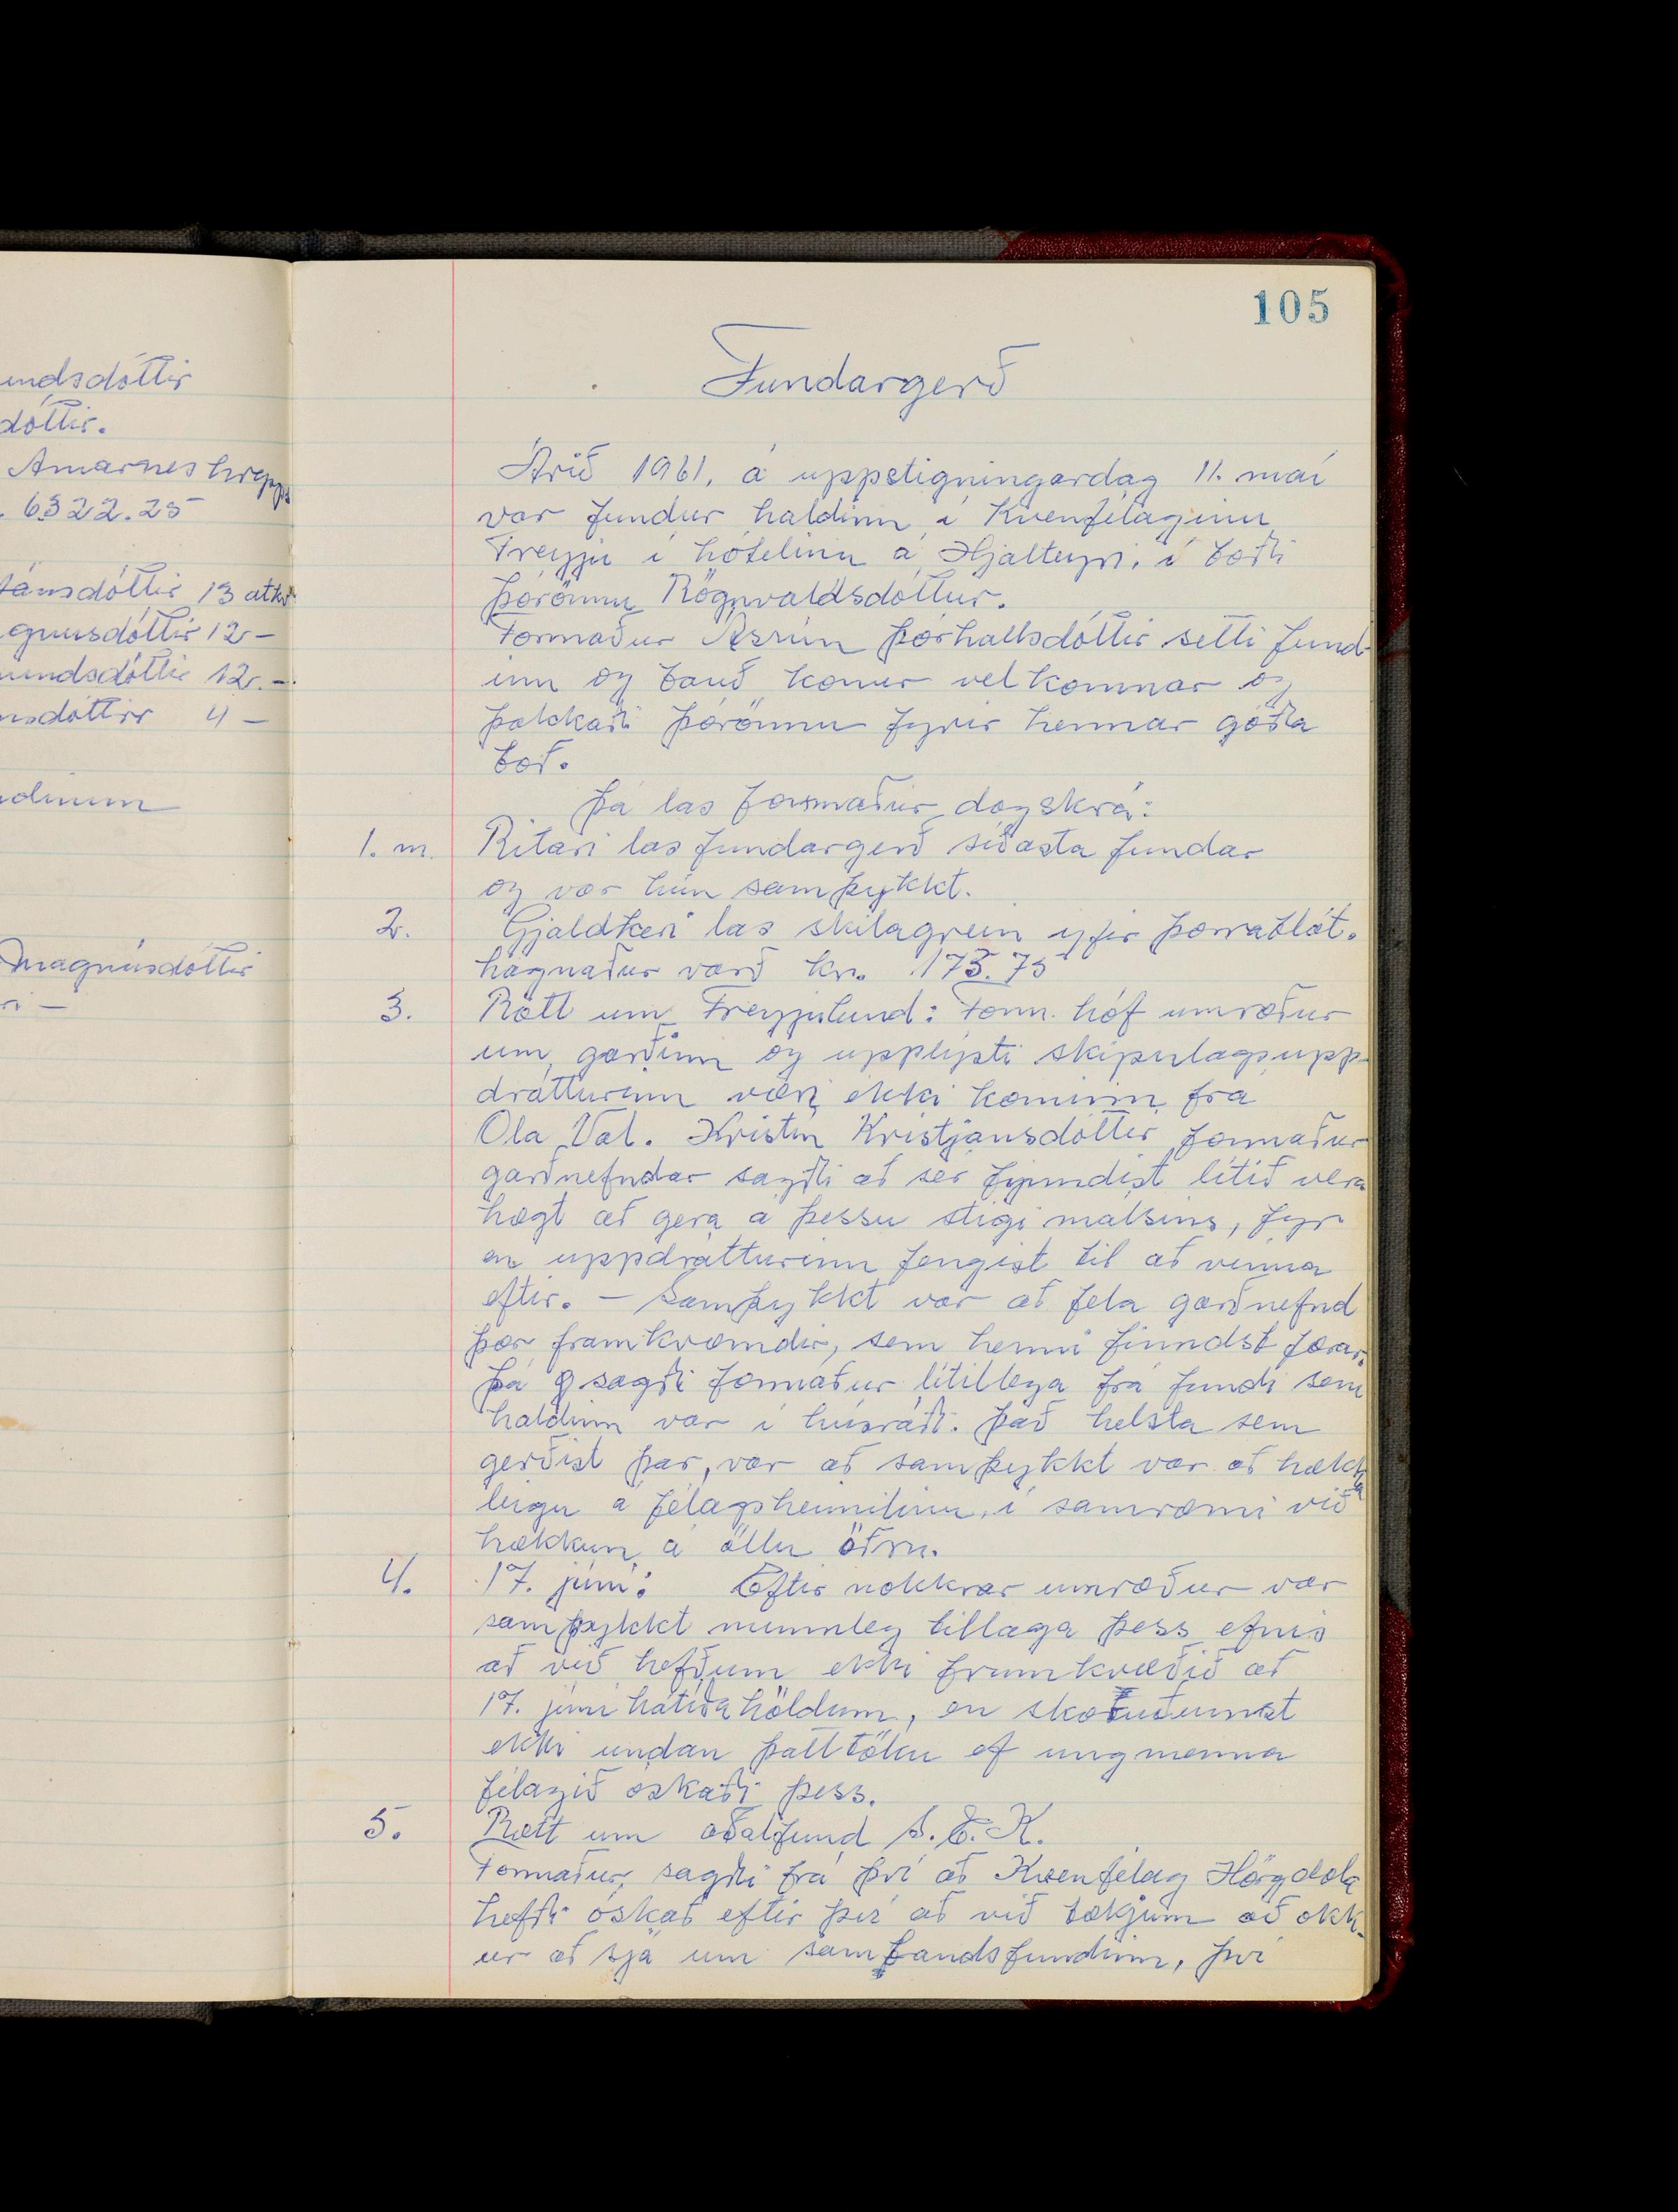 undsdóttir
dóttir.
Arnarneshrepps
6322.25
tánsdóttir 13 atkv
gnusdóttir 12 –
undsdóttir 12. –
nsdóttir 4 –
ndinum
Magnúsdóttir
ri –
105
Fundargerð
Árið 1961, á uppstigningardag 11. maí
var fundur haldinn í Kvenfélaginu
Freyju í hótelinu á Hjalteyri, í boði
Þórönnu Rögnvaldsdóttur.
Formaður Ásrún Þórhallsdóttir setti fund-
inn og bauð konur velkomnar og
þakkaði Þórönnu fyrir hennar góða
boð.
Þá las formaður dagskrá:
1. m. Ritari las fundargerð síðasta fundar
og var hún samþykkt.
2. Gjaldkeri las skilagrein yfir þorrablót.
hagnaður varð kr. 175.75
3. Rætt um Freyjulund: Form. hóf umræður
um garðinn og upplýsti skipulagsupp-
drátturinn væri ekki kominn frá
Óla Val. Kristín Kristjánsdóttir formaður
garðnefndar sagði að sér fyndist lítið vera
hægt að gera á þessu stigi málsins, fyr
en uppdrátturinn fengist til að vinna
eftir. – Samþykkt var að fela garðnefnd
þær framkvæmdir, sem henni finndst færar.
Þá sagði formaður lítillega frá fundi sem
haldinn var í húsráði. Það helsta sem
gerðist þar, var að samþykkt var að hækka
leigu á félagsheimilinu, í samræmi við
hækkun á öllu öðru.
4. 17. júní: Eftir nokkrar umræður var
samþykkt munnleg tillaga þess efnis
að við hefðum ekki frumkvæðið að
17. júní hátíðahöldum, en skoruðumst
ekki undan þátttöku ef ungmenna
félagið óskaði þess.
5. Rætt um aðalfund S.E.K.
Formaður sagði frá því að Kvenfélag Hörgdæla
hefði óskað eftir því að við tækjum að okk-
ur að sjá um sambandsfundinn, því